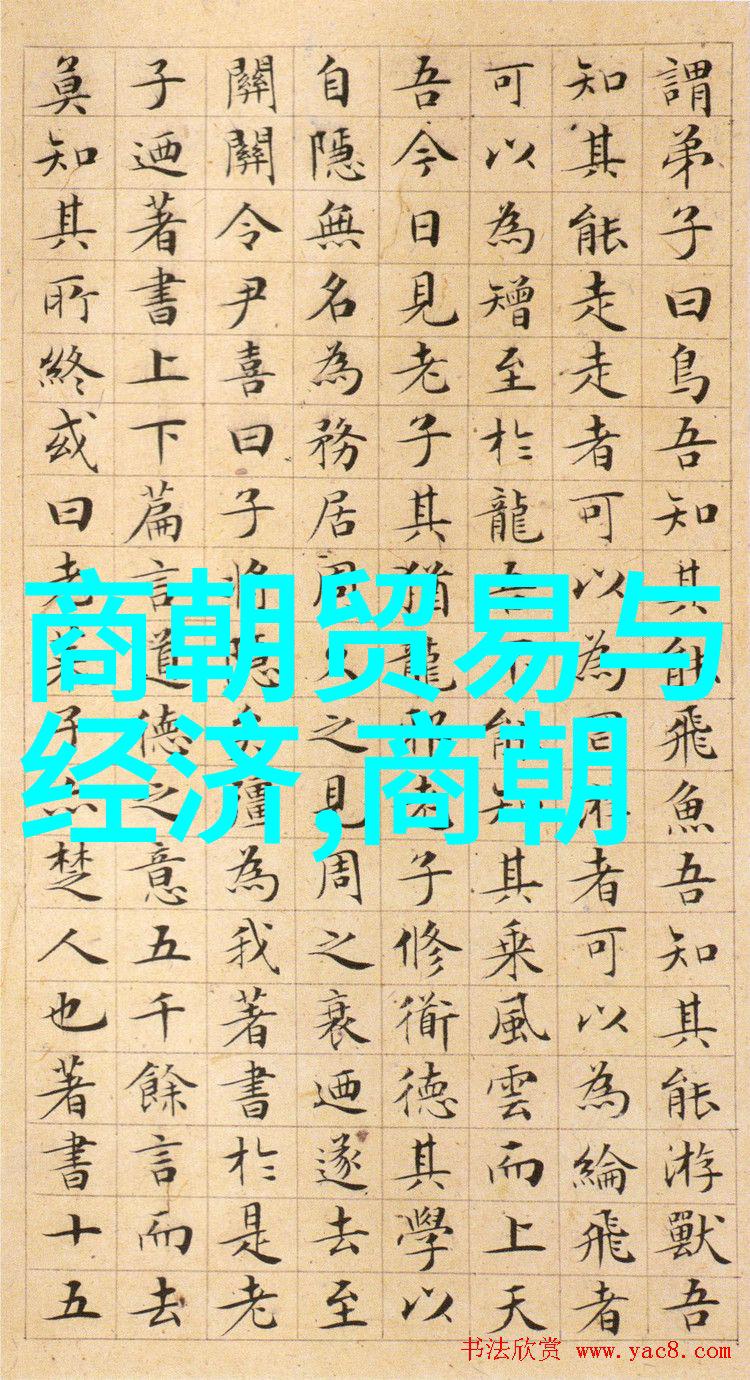 謂弟子曰鳥吾知其能飛魚吾知其能游獸吾
知其能走走者可以為罔游者可以為綸飛者
可以為矰至於龍吾不能知其乘風雲而上天
吾今日見老子其猶龍邪老子修衜德其學以
自隱無名為務居周久之見周之衰迺遂去至
關關令尹喜曰子將隱矣彊為我著書於是老
子迺著書上下篇言道德之意五千餘言而去
莫知其所終或曰老萊子亦楚人也著書十五
商朝贸易与
经济,商朝
书法欣赏 www.yac8.com